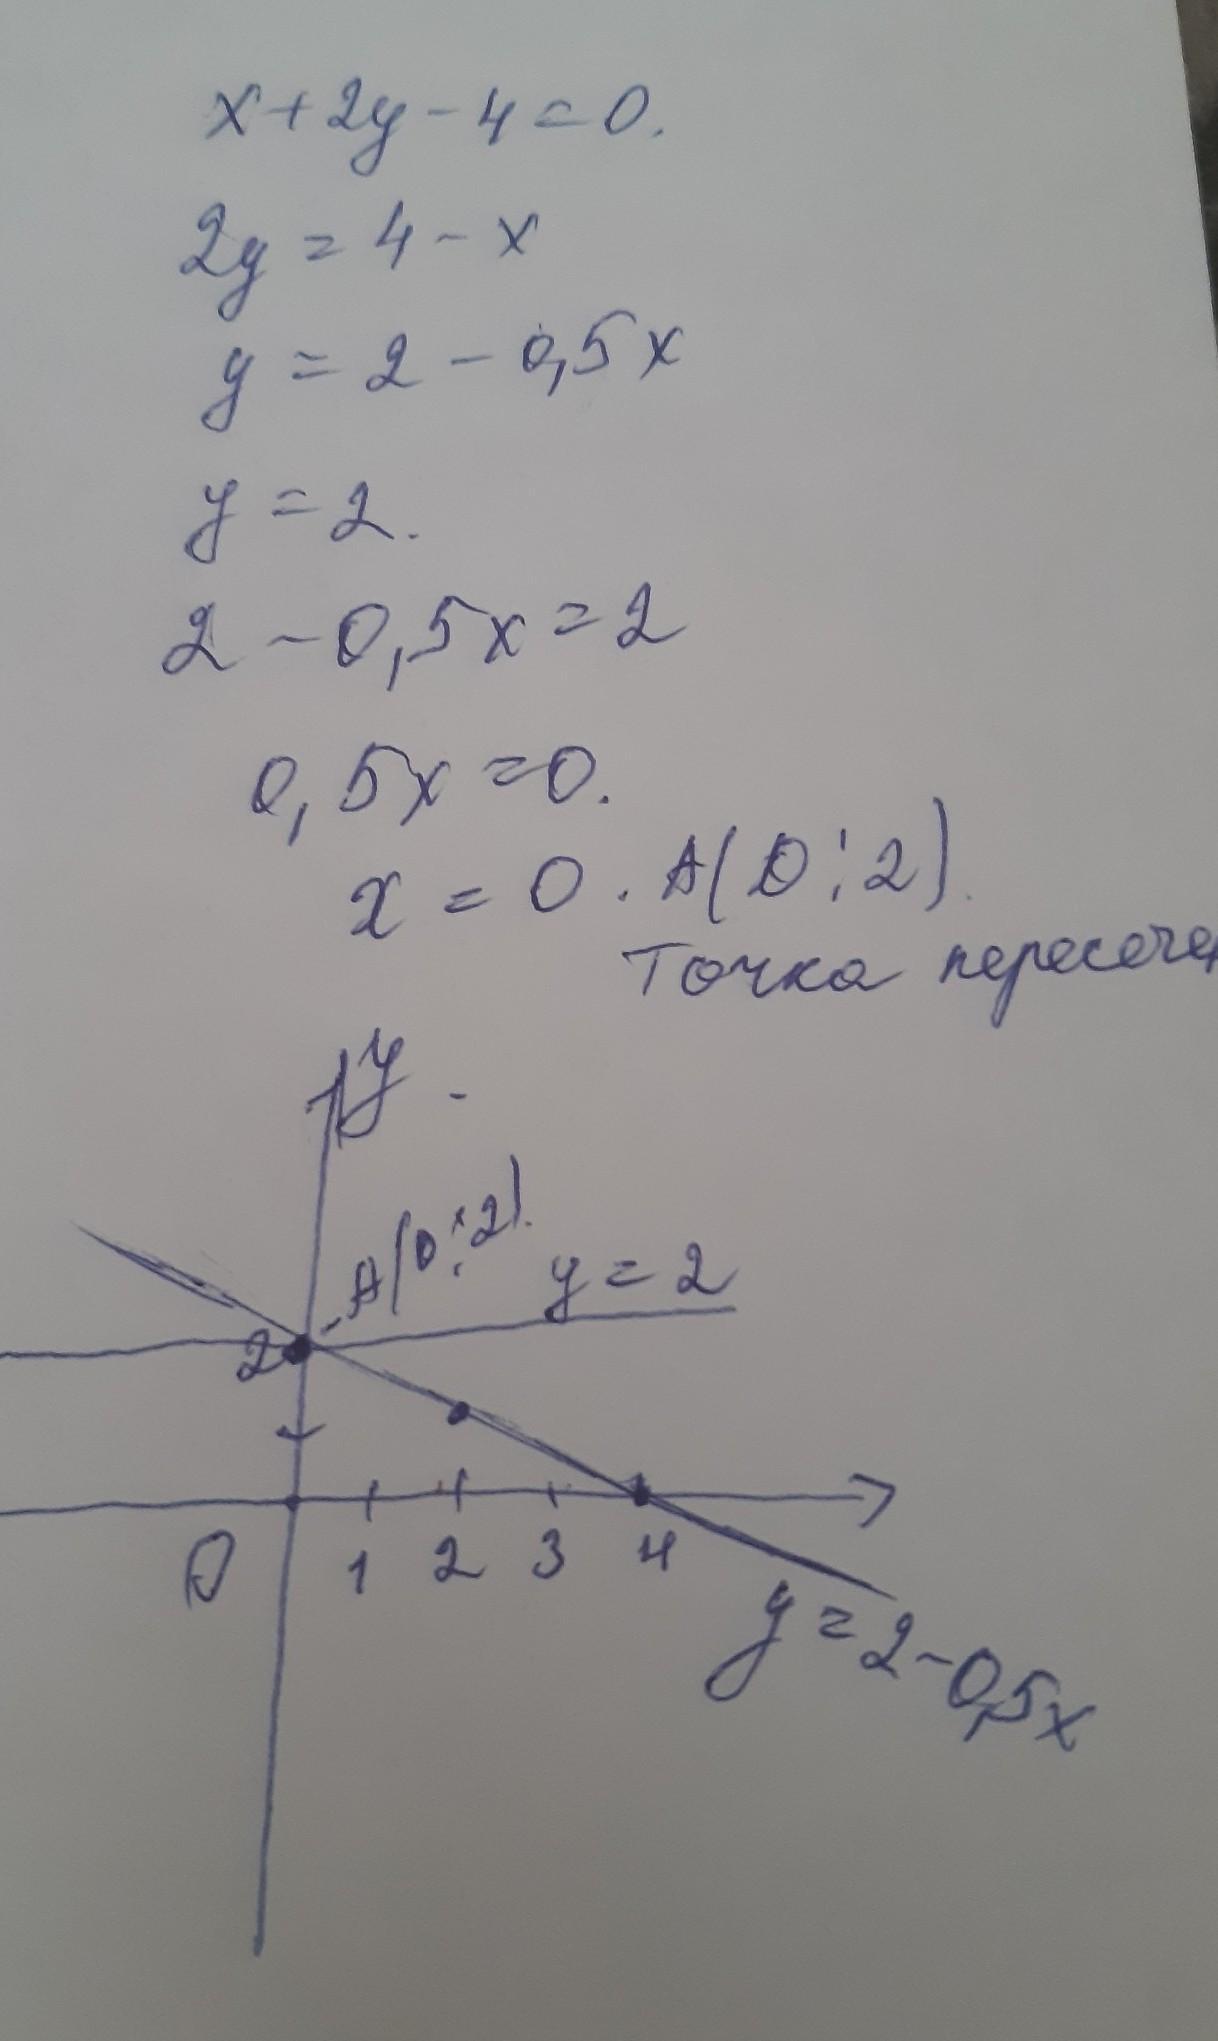 x+2y-4=0.
2y=4-x
y=2-0,5x
y=2.
2-0,5x=2
0,5x=0.
x=0. A(0;2).
Точка
y
A(0;2).
y=2
2
0 1 2 3 4
y=2-0,5x